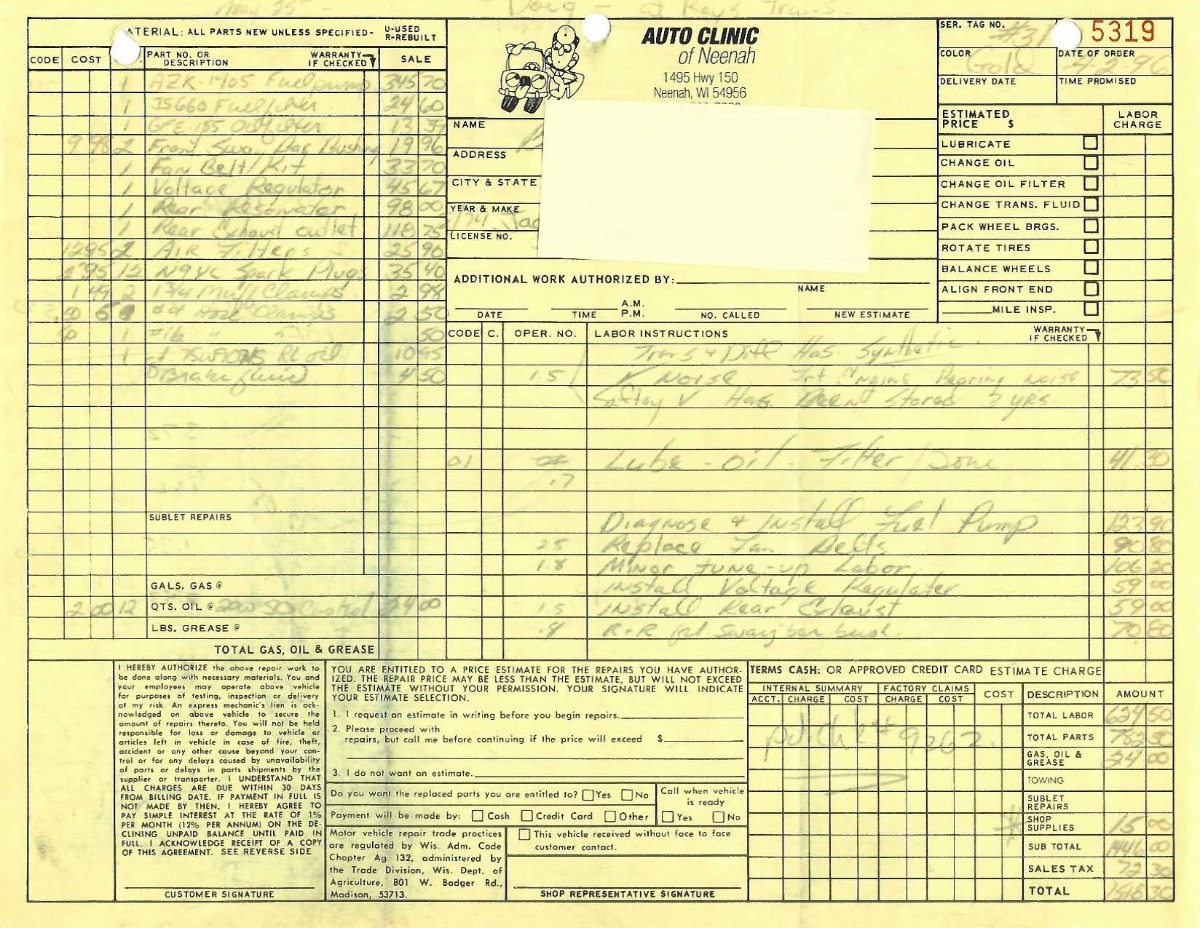 May 25th - Doug - at Rays Trans.
MATERIAL: ALL PARTS NEW UNLESS SPECIFIED- U-USED R-REBUILT
CODE COST PART NO. OR DESCRIPTION WARRANTY IF CHECKED SALE
1 AZK-1405 Fuel pump 345 70
1 JS660 Fuel filter 24 60
1 GFE 155 Oil filter 13 39
9 98 2 Front Sway Bar Bushing 19 96
1 Fan Belt/Kit 33 70
1 Voltage Regulator 45 67
1 Rear Resonator 98 00
1 Rear Exhaust outlet 118 75
12 95 2 AIR Filters 25 90
2 95 12 N9YC Spark Plugs 35 40
1 49 2 1 3/4 Muff Clamps 2 98
Hose Clamps 2 50
1 #16 " 50
1 oil 10 95
Brake fluid 4 50
SUBLET REPAIRS
GALS. GAS @
2 00 12 QTS. OIL @ 20W50 Castrol 24 00
LBS. GREASE @
TOTAL GAS, OIL & GREASE
AUTO CLINIC
of Neenah
1495 Hwy 150
Neenah, WI 54956
NAME
ADDRESS
CITY & STATE
YEAR & MAKE
74 Jag
LICENSE NO.
ADDITIONAL WORK AUTHORIZED BY:
NAME
DATE TIME A.M. P.M. NO. CALLED NEW ESTIMATE
SER. TAG NO. #31 5319
COLOR Gold DATE OF ORDER 4-2-96
DELIVERY DATE TIME PROMISED
ESTIMATED PRICE $ LABOR CHARGE
LUBRICATE
CHANGE OIL
CHANGE OIL FILTER
CHANGE TRANS. FLUID
PACK WHEEL BRGS.
ROTATE TIRES
BALANCE WHEELS
ALIGN FRONT END
MILE INSP.
CODE C. OPER. NO. LABOR INSTRUCTIONS WARRANTY IF CHECKED
Trans & Diff Has Synthetic
1.5 Noise Frt Engine Bearing Noise 73 50
Saftey Has Been Stored 3 yrs
01 .7 Lube - oil - Filter / Done 41 30
Diagnose & Install Fuel Pump 123 90
Replace Fan Belts 90 80
1.8 Minor Tune-up Labor 106 20
Install Voltage Regulator 59 00
1.5 Install Rear Exhaust 59 00
.8 R+R frt Sway bar bush. 70 80
I HEREBY AUTHORIZE the above repair work to
be done along with necessary materials. You and
your employees may operate above vehicle
for purposes of testing, inspection or delivery
at my risk. An express mechanic's lien is ack-
nowledged on above vehicle to secure the
amount of repairs thereto. You will not be held
responsible for loss or damage to vehicle or
articles left in vehicle in case of fire, theft,
accident or any other cause beyond your con-
trol or for any delays caused by unavailability
of parts or delays in parts shipments by the
supplier or transporter. I UNDERSTAND THAT
ALL CHARGES ARE DUE WITHIN 30 DAYS
FROM BILLING DATE. IF PAYMENT IN FULL IS
NOT MADE BY THEN, I HEREBY AGREE TO
PAY SIMPLE INTEREST AT THE RATE OF 1%
PER MONTH (12% PER ANNUM) ON THE DE-
CLINING UNPAID BALANCE UNTIL PAID IN
FULL. I ACKNOWLEDGE RECEIPT OF A COPY
OF THIS AGREEMENT. SEE REVERSE SIDE
CUSTOMER SIGNATURE
YOU ARE ENTITLED TO A PRICE ESTIMATE FOR THE REPAIRS YOU HAVE AUTHOR-
IZED. THE REPAIR PRICE MAY BE LESS THAN THE ESTIMATE, BUT WILL NOT EXCEED
THE ESTIMATE WITHOUT YOUR PERMISSION. YOUR SIGNATURE WILL INDICATE
YOUR ESTIMATE SELECTION.
1. I request an estimate in writing before you begin repairs.
2. Please proceed with
repairs, but call me before continuing if the price will exceed $
3. I do not want an estimate.
Do you want the replaced parts you are entitled to? Yes No
Call when vehicle is ready
Payment will be made by: Cash Credit Card Other
Yes No
Motor vehicle repair trade practices
are regulated by Wis. Adm. Code
Chapter Ag 132, administered by
the Trade Division, Wis. Dept. of
Agriculture, 801 W. Badger Rd.,
Madison, 53713.
This vehicle received without face to face
customer contact.
SHOP REPRESENTATIVE SIGNATURE
TERMS CASH: OR APPROVED CREDIT CARD ESTIMATE CHARGE
INTERNAL SUMMARY FACTORY CLAIMS COST DESCRIPTION AMOUNT
ACCT. CHARGE COST CHARGE COST
pd/ck# 9262
TOTAL LABOR 624 50
TOTAL PARTS 782 50
GAS, OIL & GREASE 24 00
TOWING
SUBLET REPAIRS
* SHOP SUPPLIES 15 00
SUB TOTAL 1446 00
SALES TAX 72 30
TOTAL 1518 30